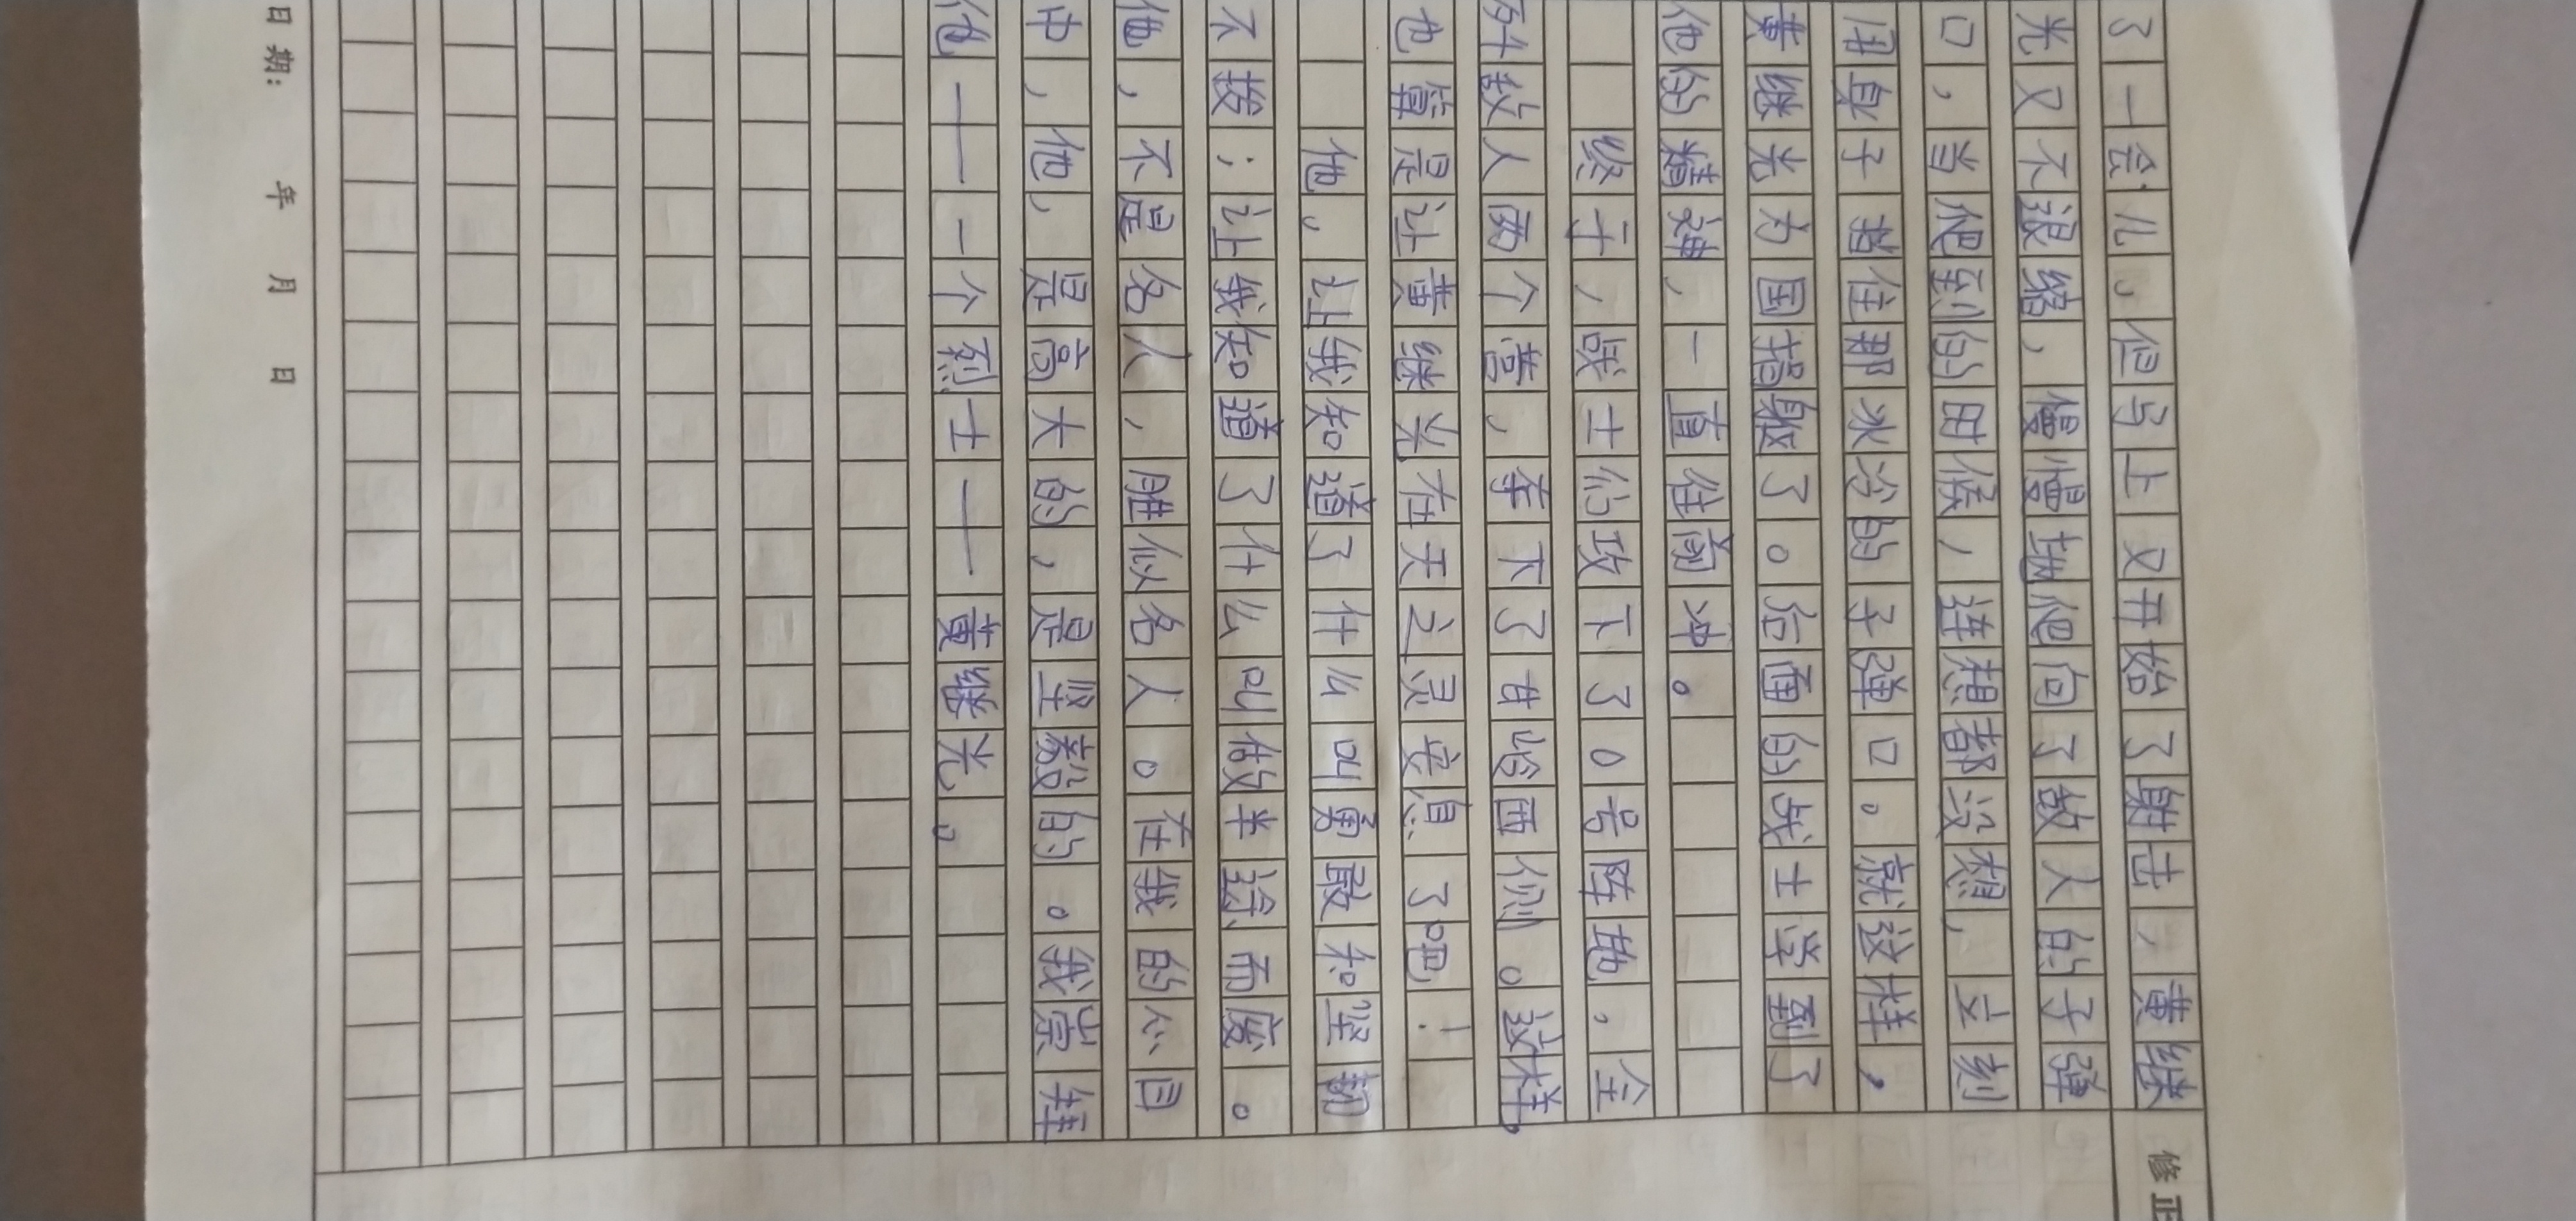 修正
了一会儿。但马上又开始了射击，黄继
光又不退缩，慢慢地爬向了敌人的子弹
口，当爬到的时候，连想都没想，立刻
用身子挡住那水分的子弹口。就这样，
黄继光为国捐躯了。后面的战士学到了
他的精神，一直往前冲。
终于，战士们攻下了0号阵地。全
歼敌人两个营，夺下了甘岭西侧。这样，
也算是让黄继光在天之灵安息了吧！
他，让我知道了什么叫勇敢和坚韧
不拔；让我知道了什么叫做半途而废。
他，不是名人，胜似名人。在我的心目
中，他，是高大的，是坚毅的。我崇拜
他——一个烈士——黄继光。
日期： 年 月 日